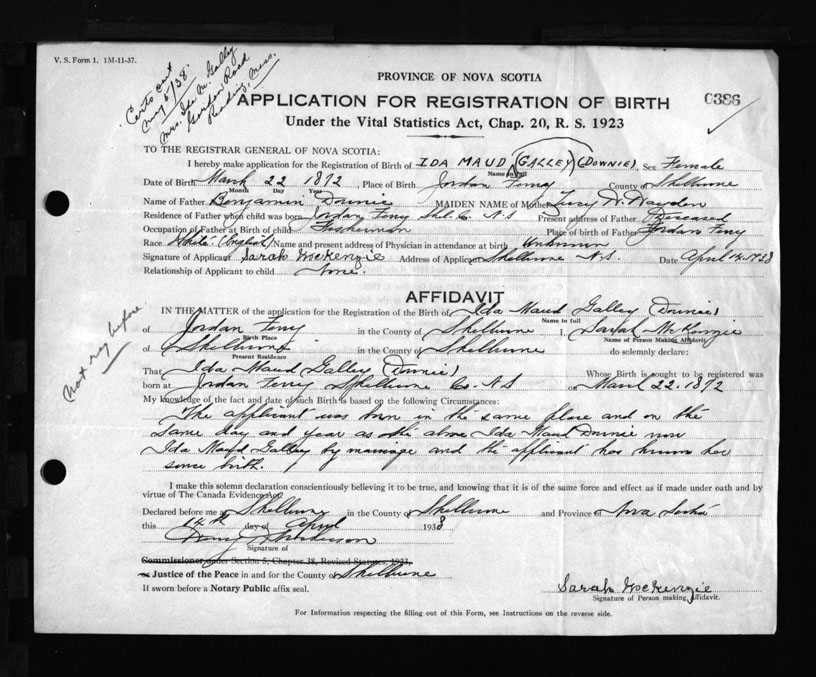 V. S. Form 1. 1M-11-37.
Certs out
May 5/38.
Mrs. Ida M. Galley
Road
Reading, Mass.
PROVINCE OF NOVA SCOTIA
APPLICATION FOR REGISTRATION OF BIRTH
0386
Under the Vital Statistics Act, Chap. 20, R. S. 1923
TO THE REGISTRAR GENERAL OF NOVA SCOTIA:
I hereby make application for the Registration of Birth of IDA MAUD (GALLEY) (DOWNIE) Sex Female
Name in full
Date of Birth March 22 1872, Place of Birth Jordan Ferry County of Shelburne
Month Day Year
Name of Father Benjamin Downie MAIDEN NAME of Mother Lucy
Residence of Father when child was born Jordan Ferry Shel. Co. N S Present address of Father Deceased
Occupation of Father at Birth of child Fisherman Place of birth of Father Jordan Ferry
Race White (English) Name and present address of Physician in attendance at birth Unknown
Signature of Applicant Sarah McKenzie Address of Applicant Shelburne N.S. Date April 14. 1938
Relationship of Applicant to child None.
AFFIDAVIT
IN THE MATTER of the application for the Registration of the Birth of Ida Maud Galley (Downie)
Name in full
of Jordan Ferry in the County of Shelburne I, Sarah McKenzie
Birth Place Name of Person Making Affidavit
of Shelburne in the County of Shelburne do solemnly declare:
Present Residence
Not reg before.
That Ida Maud Galley (Downie) Whose Birth is sought to be registered was
born at Jordan Ferry Shelburne Co. N S on March 22. 1872
My knowledge of the fact and date of such Birth is based on the following Circumstances:
The applicant was born in the same place and on the
same day and year as the above Ida Maud Downie now
Ida Maud Galley by marriage and the applicant has known her
since birth.
I make this solemn declaration conscientiously believing it to be true, and knowing that it is of the same force and effect as if made under oath and by
virtue of The Canada Evidence Act.
Declared before me at Shelburne in the County of Shelburne and Province of Nova Scotia
this 14th day of April 1938
Signature of
Commissioner under Section 5, Chapter 38, Revised Statutes 1923.
or Justice of the Peace in and for the County of Shelburne
If sworn before a Notary Public affix seal.
Sarah McKenzie
Signature of Person making Affidavit.
For Information respecting the filling out of this Form, see Instructions on the reverse side.